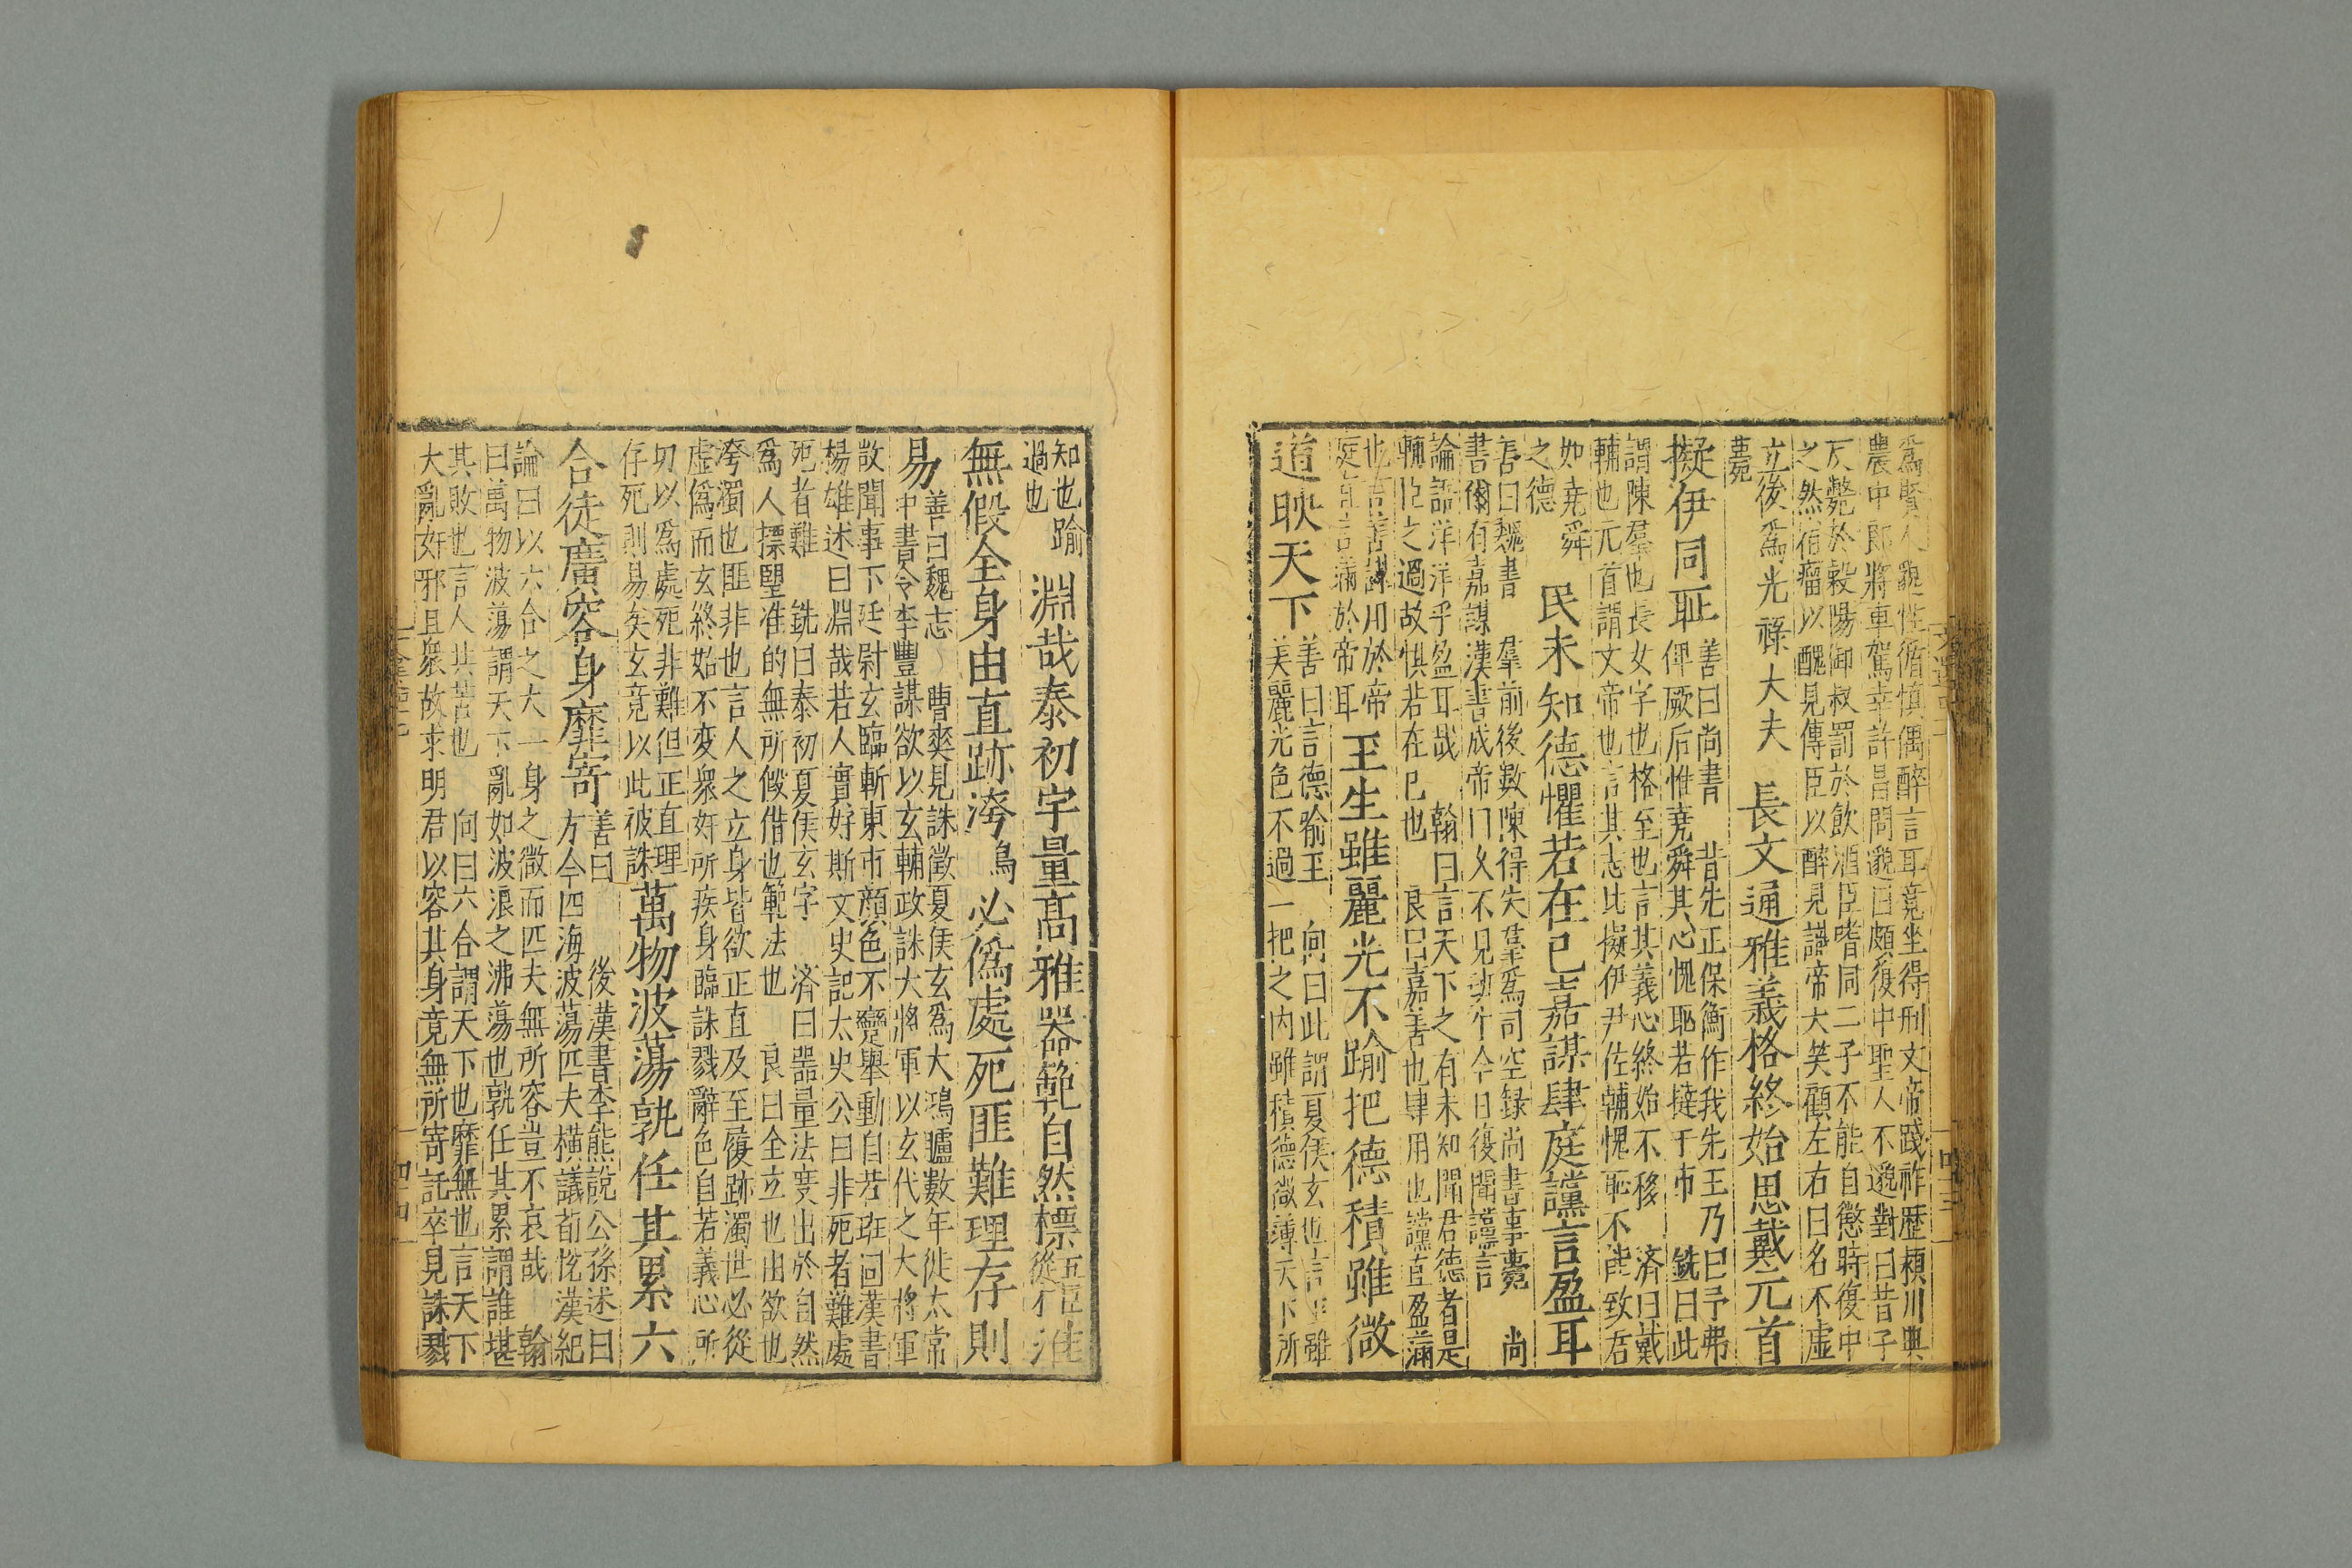 爲賢人邈性脩慎偶醉言耳竟坐得刑文帝踐祚歷潁川典
農中郎將車駕幸許昌問邈曰頗復中聖人不邈對曰昔子
反斃於穀陽御叔罰於飲酒臣嗜同二子不能自懲時復中
之然宿瘤以醜見傳臣以醉見識帝大笑顧左右曰名不虛
立後爲光祿大夫
薨
長文通雅義格終始思戴元首
擬伊同恥
善曰尚書 昔先正保衡作我先王乃曰予弗
俾厥后惟堯舜其心愧恥若撻于市 銑曰此
謂陳羣也長文字也格至也言其義心終始不移 濟曰戴
輔也元首謂文帝也言其志比擬伊尹佐輔愧恥不能致君
如堯舜
之德
民未知德懼若在己嘉謀肆庭讜言盈耳
善曰魏書 羣前後數陳得失羣爲司空録尚書事薨 尚
書爾有嘉謀漢書成帝曰久不見班生今日復聞讜言
論語洋洋乎盈耳哉 翰曰言天下之有未知聞君德者是
輔臣之過故懼若在己也 良曰嘉善也肆用也讜直盈滿
也言善謀用於帝
庭直言滿於帝耳
王生雖麗光不踰把德積雖微
道映天下
善曰言德喻玉 向曰此謂夏侯玄也言玉雖
美麗光色不過一把之内雖積德微薄天下所
知也踰
過也
淵哉泰初宇量高雅器範自然標准
無假全身由直跡洿必僞處死匪難理存則
易
善曰魏志 曹爽見誅徵夏侯玄爲大鴻臚數年徙太常
中書令李豐謀欲以玄輔政誅大將軍以玄代之大將軍
散聞事下廷尉玄臨斬東市顔色不變舉動自若班固漢書
楊雄述曰淵哉若人實好斯文史記太史公曰非死者難處
死者難 銑曰泰初夏侯玄字 濟曰器量法度出於自然
爲人摽望准的無所假借也範法也 良曰全立也由欲也
洿濁也匪非也言人之立身皆欲正直及至履跡濁世必從
虛僞而玄終始不変衆奸所疾身臨誅戮辭色自若義心所
切以爲處死非難但正直理
存死則易矣玄竟以此彼誅
萬物波蕩孰任其累六
合徒廣容身靡寄
善曰 後漢書李熊說公孫述曰
方今四海波蕩匹夫橫議荀悅漢紀
論曰以六合之大一身之微而匹夫無所容豈不哀哉 翰
曰萬物波蕩謂天下亂如波浪之沸蕩也孰任其累謂誰堪
其敗也言人共苦也 向曰六合謂天下也靡無也言天下
大亂奸邪且衆故求明君以容其身竟無所寄託卒見誅戮